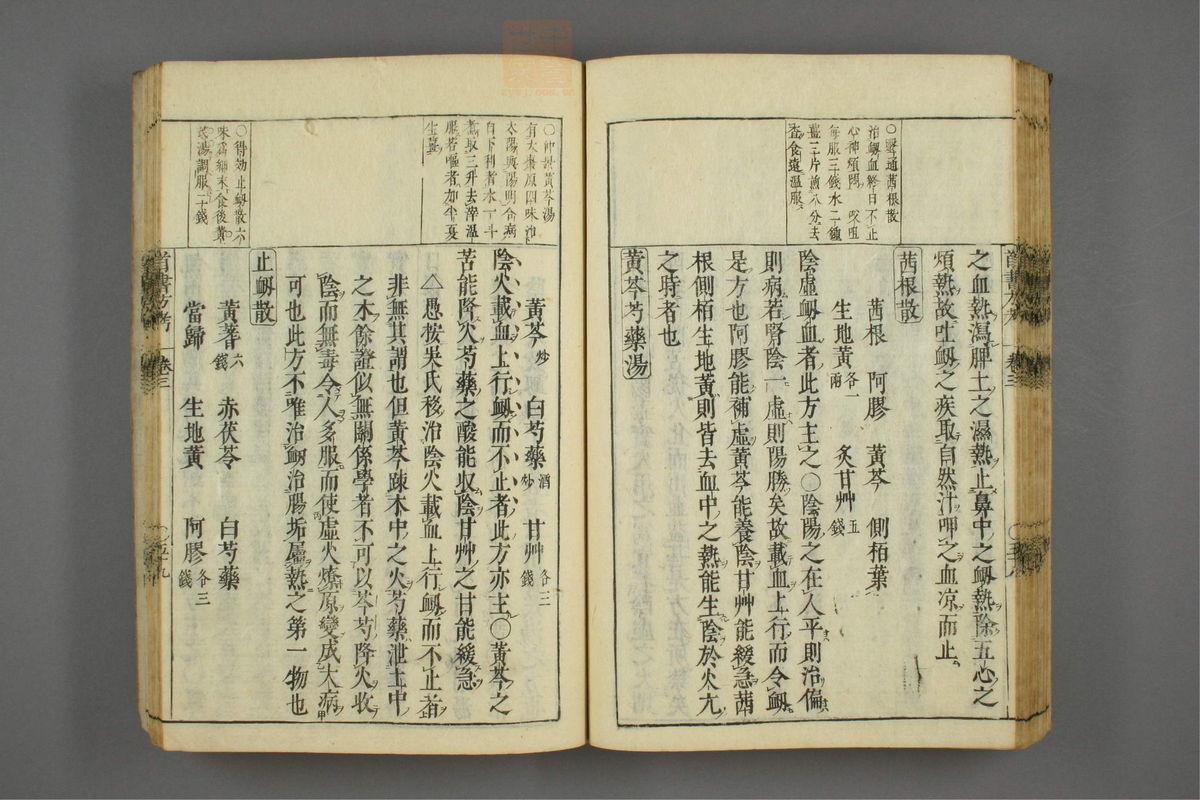 ○聖通茜根散
治衂血終日不止
心神煩悶 㕮咀
每服三錢水二鍾
薑三片煎八分去
渣食遠溫服
之血熱瀉脾土之濕熱止鼻中之衂熱除五心之
煩熱故吐衂之疾取自然汁呷之血凉而止
茜根散
茜根 阿膠 黃芩 側栢葉
生地黃 各一兩 炙甘艸 五錢
陰虛衂血者此方主之○陰陽之在人平則治偏
則病若腎陰一虛則陽勝矣故載血上行而令衂
是方也阿膠能補虛黃芩能養陰甘艸能緩急茜
根側栢生地黃則皆去血中之熱能生陰於火亢
之時者也
黃芩芍藥湯
○仲景黃芩湯
有大棗原四味治
太陽與陽明合病
自下利者水一斗
煮取三升去滓溫
服若嘔者加半夏
生薑
黃芩 炒 白芍藥 酒炒 甘艸 各二錢
陰火載血上行衂而不止者此方亦主○黃芩之
苦能降火芍藥之酸能收陰甘艸之甘能緩急
△愚按吳氏移治陰火載血上行衂而不止者
非無其謂也但黃芩疎木中之火芍藥泄土中
之木餘證似無關係學者不可以芩芍降火收
陰而無毒令人多服而使虛火燎原變成大病
可也此方不唯治衂治腸垢屬熱之第一物也
○得効止衂散六
味爲細末食後黃
湯調服二十錢
止衂散
黃蓍 六錢 赤茯苓 白芍藥
當歸 生地黃 阿膠 各三錢
首書方考
卷三
五十九